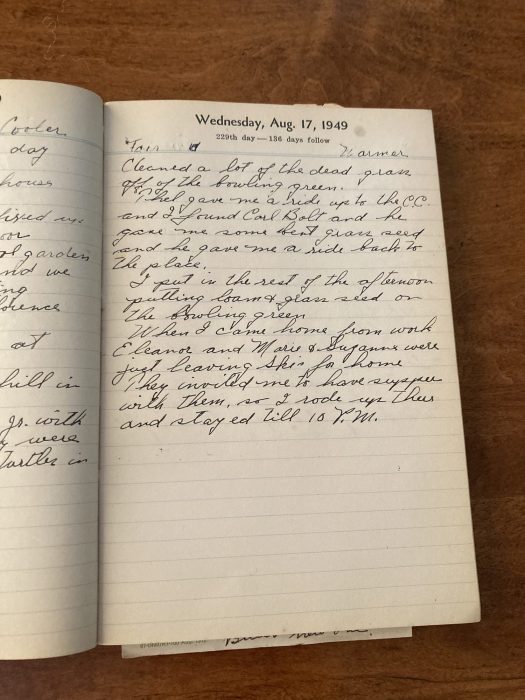 Cooler
day
house
fixed up
garden
and we
at
hill in
Jr. with
y were
Turtles in
Wednesday, Aug. 17, 1949
229th day—136 days follow
Fair Warmer
Cleaned a lot of the dead grass
off of the bowling green.
Thel gave me a ride up to the C.C.
and I found Carl Bolt and he
gave me some bent grass seed
and he gave me a ride back to
the place.
I put in the rest of the afternoon
putting loam & grass seed on
the bowling green
When I came home from work
Eleanor and Marie & Suzanne were
just leaving Skis for home
They invited me to have supper
with them, so I rode up their
and stayed till 10 P.M.